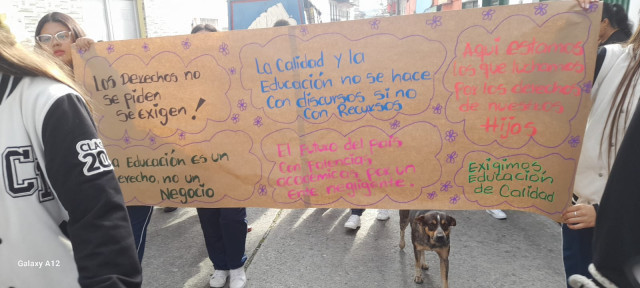 Los Derechos no
se piden,
se exigen!
La Calidad y la
Educación no se hace
Con discursos si no
Con Recursos
Aqui estamos
los que luchamos
por los derechos
de nuestros
Hijos
a Educación es un
erecho, no un
Negocio
El Futuro del País
Con Falencias
académicas por un
Ente negligente.
Exigimos
Educación
de Calidad
CLASS
202
Galaxy A12